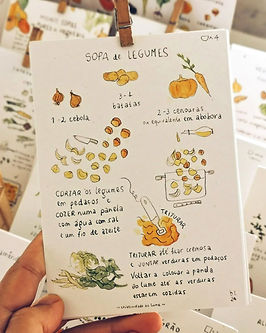 SOPA de LEGUMES
3-4
batatas
1-2 cebola
2-3 cenouras
ou equivalente em abóbora
CORTAR os legumes
em pedaços e
COZER numa panela
com água com sal
e um fio de azeite.
TRITURAR
TRITURAR até ficar cremoso
e JUNTAR verduras em pedaços
Voltar a colocar a panela
ao lume até as verduras
estarem cozidas